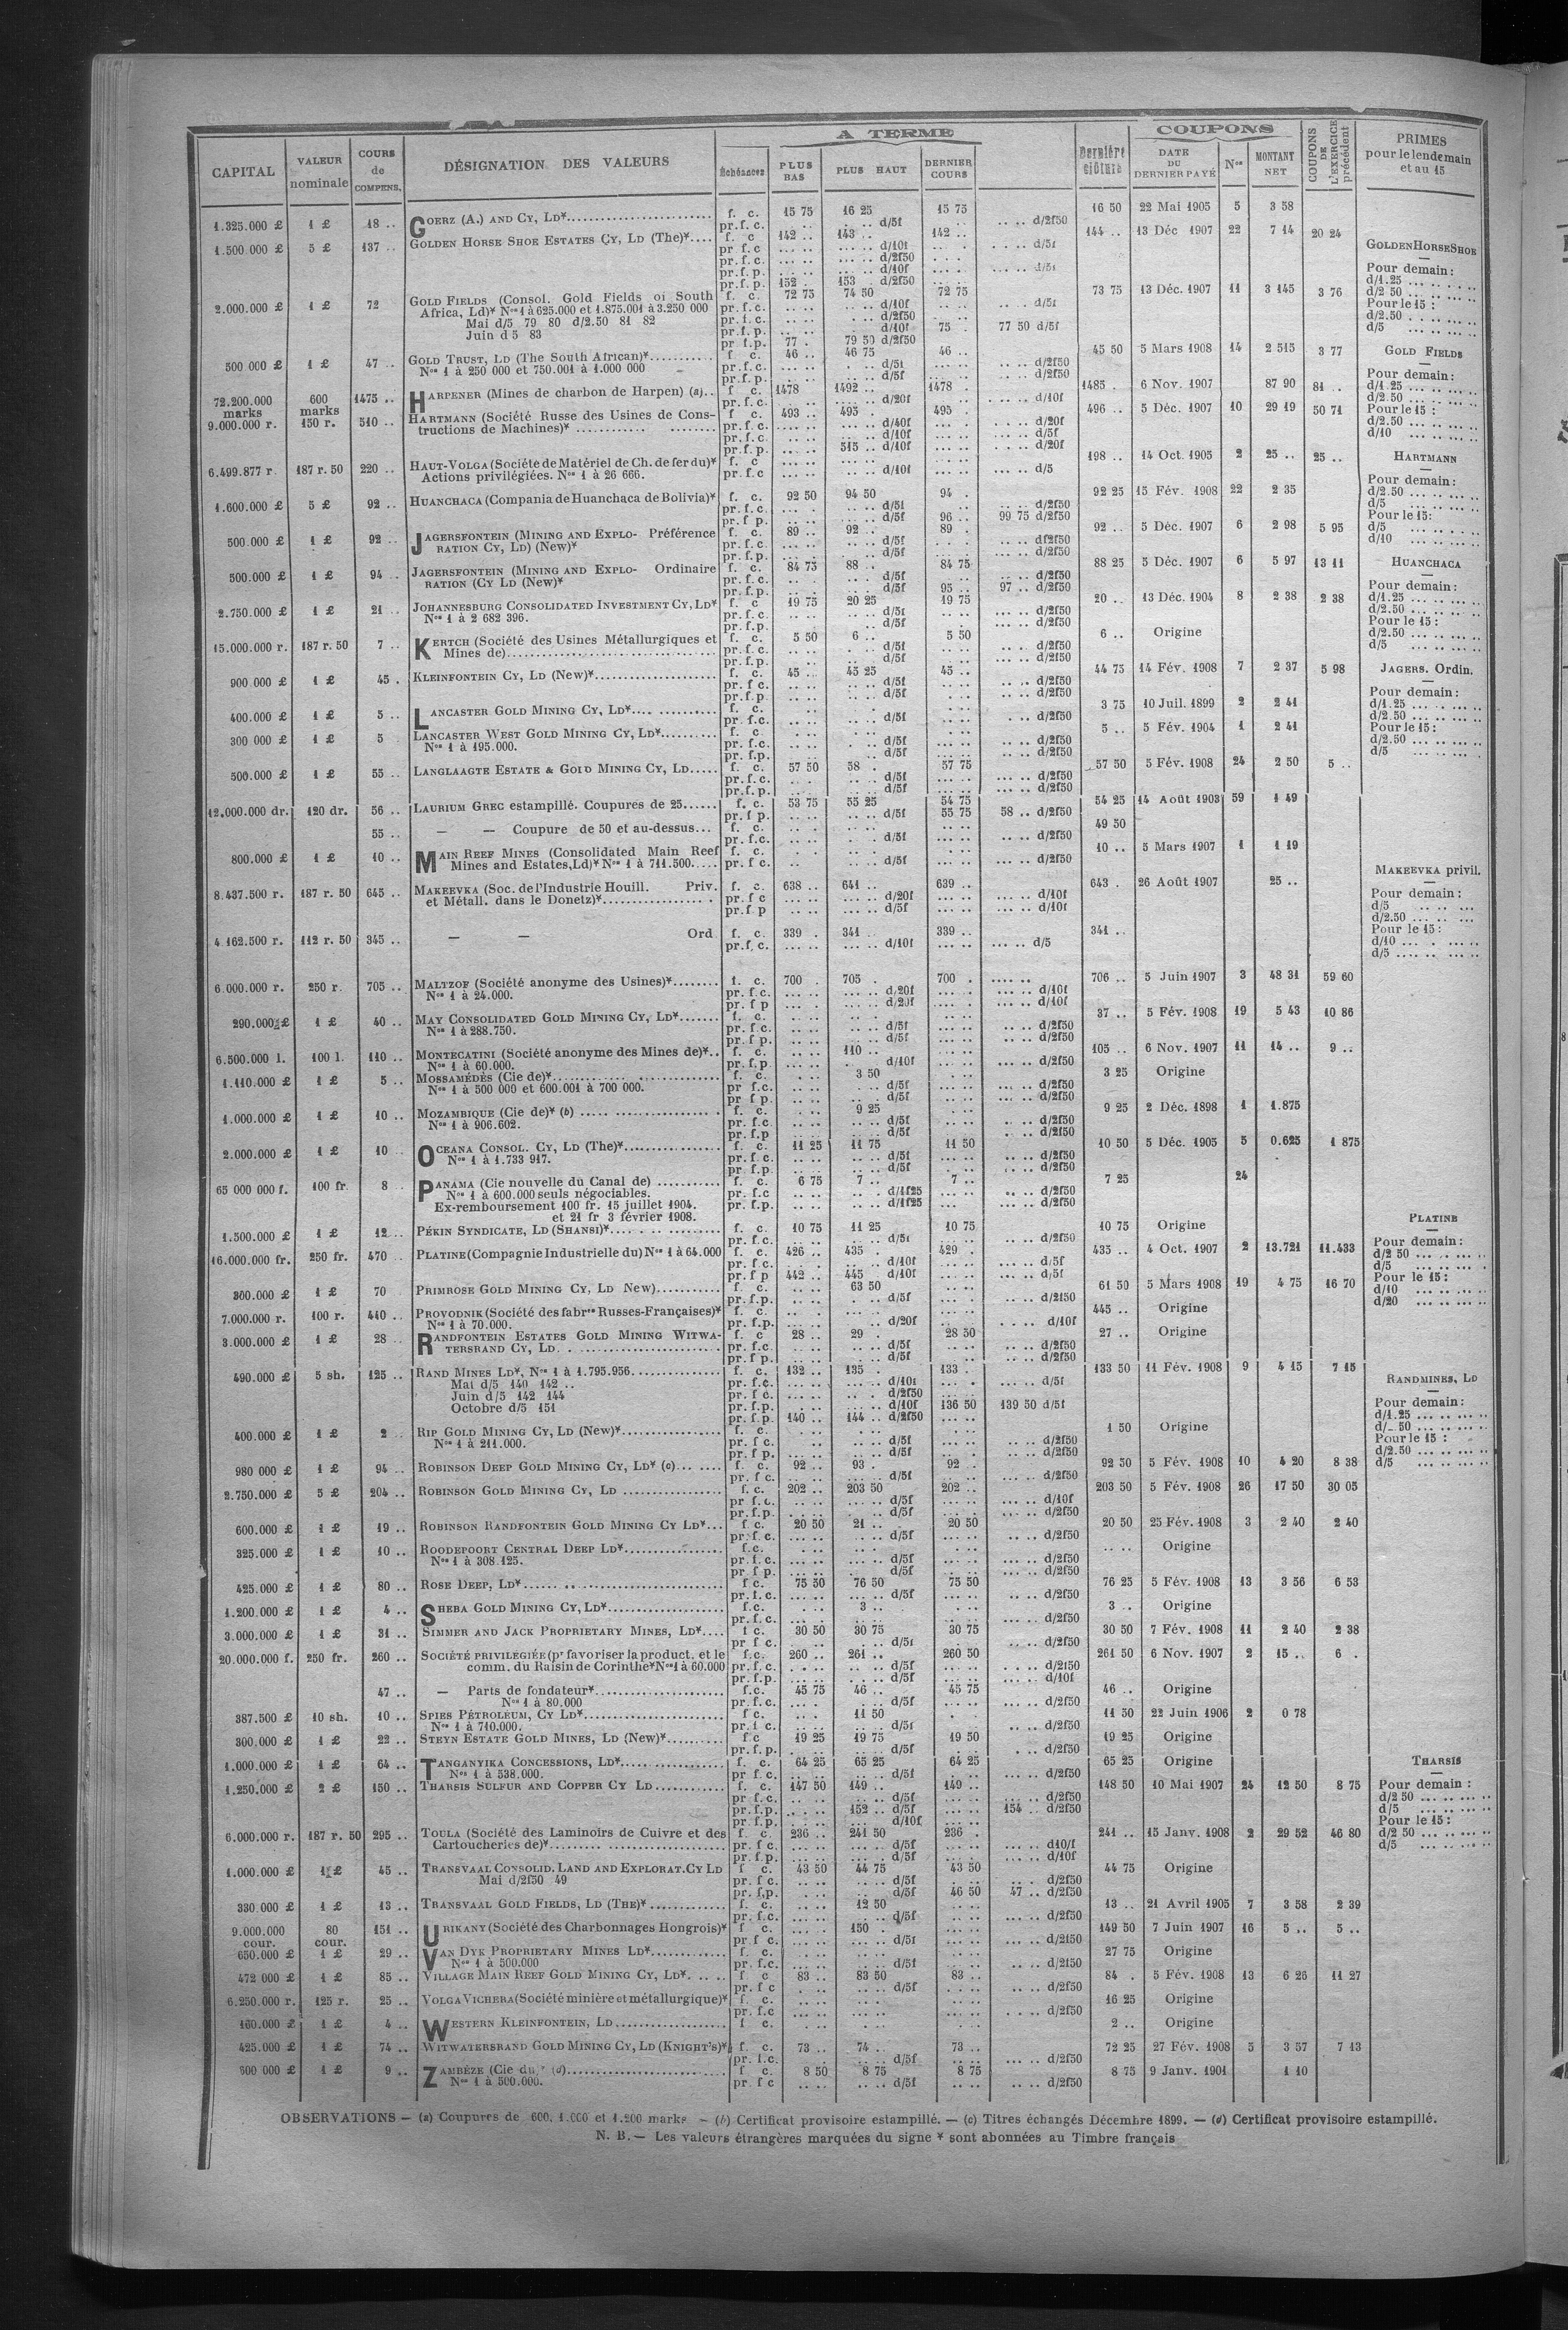 CAPITAL | VALEUR nominale | COURS de COMPENS. | DÉSIGNATION DES VALEURS | Échéances | A TERME | PLUS BAS | PLUS HAUT | DERNIER COURS | Dernière clôture | COUPONS | DATE DU DERNIER PAYÉ | Nos | MONTANT NET | COUPONS DE L'EXERCICE précédent | PRIMES pour le lendemain et au 15
1.325.000 £ 1 £ 18 .. GOERZ (A.) AND CY, LD* f. c. 15 75 16 25 15 75 16 50 22 Mai 1905 5 3 58
pr.f.c. d/5f d/2f50
1.500.000 £ 5 £ 137 .. GOLDEN HORSE SHOE ESTATES CY, LD (The)* f. c 142 .. 143 .. 142 .. 144 .. 13 Déc 1907 22 7 14 20 24
pr.f.c d/10f d/5f
pr.f.c. d/2f50
pr.f.p. d/10f d/5f
pr.f.p. 152 . 153 . d/2f50
2.000.000 £ 1 £ 72 GOLD FIELDS (Consol. Gold Fields of South f. c. 72 75 74 50 72 75 73 75 13 Déc. 1907 11 3 145 3 76
Africa, Ld)* Nos 1 à 625.000 et 1.875.001 à 3.250 000 pr.f.c. d/10f d/5f
Mai d/5 79 80 d/2.50 81 82 pr.f.c. d/2f50
Juin d 5 83 pr.f.p. d/10f 75 . 77 50 d/5f
pr f.p. 77 . 79 50 d/2f50
500 000 £ 1 £ 47 .. GOLD TRUST, LD (The South African)* f c. 46 .. 46 75 46 .. 45 50 5 Mars 1908 14 2 515 3 77
Nos 1 à 250 000 et 750.001 à 1.000 000 pr.f.c. d/5f d/2f50
pr.f.p. d/5f d/2f50
72.200.000 marks 600 marks 1475 .. HARPENER (Mines de charbon de Harpen) (a) f c. 1478 1492 .. 1478 . 1485 . 6 Nov. 1907 87 90 81 .
pr.f.c. d/20f d/10f
9.000.000 r. 150 r. 510 .. HARTMANN (Société Russe des Usines de Cons- f c. 493 .. 495 . 495 . 496 .. 5 Déc. 1907 10 29 19 50 71
tructions de Machines)* pr.f.c. d/40f d/20f
pr.f.c. d/10f d/5f
pr.f.p. 515 .. d/10f d/20f
6.499.877 r. 187 r. 50 220 .. HAUT-VOLGA (Société de Matériel de Ch. de fer du)* f. c 198 .. 14 Oct. 1905 2 25 .. 25 ..
Actions privilégiées. Nos 1 à 26 666. pr.f.c d/10f d/5
1.600.000 £ 5 £ 92 .. HUANCHACA (Compania de Huanchaca de Bolivia)* f. c. 92 50 94 50 94 . 92 25 15 Fév. 1908 22 2 35
pr.f.c. d/5f d/2f50
pr.f p. d/5f 96 .. 99 75 d/2f50
500.000 £ 1 £ 92 .. JAGERSFONTEIN (MINING AND EXPLO- Préférence f. c. 89 .. 92 .. 89 . 92 .. 5 Déc. 1907 6 2 98 5 95
RATION CY, LD) (New)* pr.f.c. d/5f d/2f50
pr.f.p. d/5f d/2f50
500.000 £ 1 £ 94 .. JAGERSFONTEIN (MINING AND EXPLO- Ordinaire f c. 84 75 88 .. 84 75 88 25 5 Déc. 1907 6 5 97 13 11
RATION (CY LD (New)* pr.f.c. d/5f d/2f50
pr.f.p. d/5f 95 .. 97 .. d/2f50
2.750.000 £ 1 £ 21 .. JOHANNESBURG CONSOLIDATED INVESTMENT CY, LD* f. c 19 75 20 25 19 75 20 .. 13 Déc. 1904 8 2 38 2 38
Nos 1 à 2 682 396. pr.f.c. d/5f d/2f50
pr.f.p. d/5f d/2f50
15.000.000 r. 187 r. 50 7 .. KERTCH (Société des Usines Métallurgiques et f. c. 5 50 6 .. 5 50 6 .. Origine
Mines de) pr.f.c. d/5f d/2f50
pr.f.p. d/5f d/2f50
900 000 £ 1 £ 45 . KLEINFONTEIN CY, LD (New)* f. c. 45 .. 45 25 45 .. 44 75 14 Fév. 1908 7 2 37 5 98
pr. f c. d/5f d/2f50
pr.f.p d/5f d/2f50
400.000 £ 1 £ 5 .. LANCASTER GOLD MINING CY, LD* f. c. 3 75 10 Juil. 1899 2 2 41
pr.f.c. d/5f d/2f50
300 000 £ 1 £ 5 LANCASTER WEST GOLD MINING CY, LD* f. c 5 .. 5 Fév. 1904 1 2 41
Nos 1 à 195.000. pr.f.c. d/5f d/2f50
pr.f.p. d/5f d/2f50
500.000 £ 1 £ 55 .. LANGLAAGTE ESTATE & GOLD MINING CY, LD f. c. 57 50 58 . 57 75 57 50 5 Fév. 1908 24 2 50 5 ..
pr.f.c. d/5f d/2f50
pr.f.p. d/5f d/2f50
12.000.000 dr. 120 dr. 56 .. LAURIUM GREC estampillé. Coupures de 25 f. c. 53 75 55 25 54 75 54 25 14 Août 1903 59 1 49
pr.f p. d/5f 55 75 58 .. d/2f50
55 .. — — Coupure de 50 et au-dessus f. c. 49 50
pr.f.c. d/5f d/2f50
800.000 £ 1 £ 10 .. MAIN REEF MINES (Consolidated Main Reef f. c. 10 .. 5 Mars 1907 1 1 19
Mines and Estates, Ld)* Nos 1 à 711.500 pr.f c. d/5f d/2f50
8.437.500 r. 187 r. 50 645 .. MAKEEVKA (Soc. de l'Industrie Houill. Priv. f. c. 638 .. 641 .. 639 .. 643 . 26 Août 1907 25 ..
et Métall. dans le Donetz)* pr.f c d/20f d/10f
pr.f.p d/5f d/10f
4.162.500 r. 112 r. 50 345 .. — — Ord f. c. 339 . 341 .. 339 .. 341 ..
pr.f.c. d/10f d/5
6.000.000 r. 250 r. 705 .. MALTZOF (Société anonyme des Usines)* f. c. 700 . 705 . 700 . 706 .. 5 Juin 1907 3 48 31 59 60
Nos 1 à 24.000. pr.f.c. d/20f d/10f
pr.f p d/20f d/10f
290.000 £ 1 £ 40 .. MAY CONSOLIDATED GOLD MINING CY, LD* f. c. 37 .. 5 Fév. 1908 19 5 43 10 86
Nos 1 à 288.750. pr.f.c. d/5f d/2f50
pr.f p. d/5f d/2f50
6.500.000 l. 100 l. 110 .. MONTECATINI (Société anonyme des Mines de)* f. c. 110 .. 105 .. 6 Nov. 1907 11 14 .. 9 ..
Nos 1 à 60.000. pr.f.p d/10f d/2f50
1.110.000 £ 1 £ 5 .. MOSSAMÉDÈS (Cie de)* f. c. 3 50 3 25 Origine
Nos 1 à 500 000 et 600.001 à 700 000. pr f.c. d/5f d/2f50
pr f p. d/5f d/2f50
1.000.000 £ 1 £ 10 .. MOZAMBIQUE (Cie de)* (b) f. c. 9 25 9 25 2 Déc. 1898 1 1.875
Nos 1 à 906.602. pr.f.c. d/5f d/2f50
pr.f.p d/5f d/2f50
2.000.000 £ 1 £ 10 OCEANA CONSOL. CY, LD (The)* f. c. 11 25 11 75 11 50 10 50 5 Déc. 1905 5 0.625 1 875
Nos 1 à 1.733 917. pr.f c. d/5f d/2f50
pr.f.p. d/5f d/2f50
65 000 000 f. 100 fr. 8 PANAMA (Cie nouvelle du Canal de) f. c. 6 75 7 .. 7 .. 7 25 24
Nos 1 à 600.000 seuls négociables. pr.f.c d/1f25 d/2f50
Ex-remboursement 100 fr. 15 juillet 1904. pr.f.p. d/1f25 d/2f50
et 21 fr 3 février 1908.
1.500.000 £ 1 £ 12 .. PÉKIN SYNDICATE, LD (SHANSI)* f. c. 10 75 11 25 10 75 10 75 Origine
pr.f.c. d/5f d/2f50
16.000.000 fr. 250 fr. 470 .. PLATINE (Compagnie Industrielle du) Nos 1 à 64.000 f. c. 426 .. 435 . 429 . 435 .. 4 Oct. 1907 2 13.721 11.433
pr.f c. d/10f d/5f
pr.f p 442 .. 445 d/10f d/5f
300.000 £ 1 £ 70 PRIMROSE GOLD MINING CY, LD New) f. c. 63 50 61 50 5 Mars 1908 19 4 75 16 70
pr.f.p. d/5f d/2f50
7.000.000 r. 100 r. 440 .. PROVODNIK (Société des fabres Russes-Françaises)* f. c. 445 .. Origine
Nos 1 à 70.000. pr.f.p. d/20f d/10f
3.000.000 £ 1 £ 28 .. RANDFONTEIN ESTATES GOLD MINING WITWA- f c 28 .. 29 . 28 50 27 .. Origine
TERSRAND CY, LD. pr.f.c d/5f d/2f50
pr.f p. d/5f d/2f50
490.000 £ 5 sh. 125 .. RAND MINES LD*, Nos 1 à 1.795.956 f c. 132 .. 135 . 133 . 133 50 11 Fév. 1908 9 4 15 7 15
Mai d/5 140 142 .. pr.f.c. d/10f d/5f
Juin d/5 142 144 pr.f c. d/2f50
Octobre d/5 151 pr.f.p. d/10f 136 50 139 50 d/5f
pr.f.p. 140 .. 144 .. d/2f50
400.000 £ 1 £ 2 RIP GOLD MINING CY, LD (New)* f. c. 1 50 Origine
Nos 1 à 211.000. pr. f c. d/5f d/2f50
pr.f p. d/5f d/2f50
980 000 £ 1 £ 94 .. ROBINSON DEEP GOLD MINING CY, LD* (c) f. c. 92 .. 93 . 92 .. 92 50 5 Fév. 1908 10 4 20 8 38
pr.f c. d/5f d/2f50
2.750.000 £ 5 £ 204 .. ROBINSON GOLD MINING CY, LD f. c. 202 .. 203 50 202 .. 203 50 5 Fév. 1908 26 17 50 30 05
pr f.c. d/5f d/10f
pr.f.p. d/5f d/2f50
600.000 £ 1 £ 19 .. ROBINSON RANDFONTEIN GOLD MINING CY LD* f c. 20 50 21 .. 20 50 20 50 25 Fév. 1908 3 2 40 2 40
pr.f c. d/5f d/2f50
325.000 £ 1 £ 10 .. ROODEPOORT CENTRAL DEEP LD* f.c. Origine
Nos 1 à 308.125. pr.f.c. d/5f d/2f50
pr f p. d/5f d/2f50
425.000 £ 1 £ 80 .. ROSE DEEP, LD* f c. 75 50 76 50 75 50 76 25 5 Fév. 1908 13 3 56 6 53
pr.f.c. d/5f d/2f50
1.200.000 £ 1 £ 4 .. SHEBA GOLD MINING CY, LD* f.c. 3 .. 3 .. Origine
pr.f.c. d/2f50
3.000.000 £ 1 £ 31 .. SIMMER AND JACK PROPRIETARY MINES, LD* f c. 30 50 30 75 30 75 30 50 7 Fév. 1908 11 2 40 2 38
pr f c. d/5f d/2f50
20.000.000 f. 250 fr. 260 .. SOCIÉTÉ PRIVILÉGIÉE (pr favoriser la product. et le f.c. 260 .. 261 .. 260 50 261 50 6 Nov. 1907 2 15 .. 6 .
comm. du Raisin de Corinthe* Nos 1 à 60.000 pr.f.c. d/5f d/2f50
pr.f.p. d/5f d/10f
47 .. — Parts de fondateur* f.c. 45 75 46 .. 45 75 46 .. Origine
Nos 1 à 80.000 pr.f.c. d/5f d/2f50
387.500 £ 10 sh. 10 .. SPIES PÉTROLEUM, CY LD* f c. 11 50 11 50 22 Juin 1906 2 0 78
Nos 1 à 710.000. pr.f c. d/5f d/2f50
300.000 £ 1 £ 22 .. STEYN ESTATE GOLD MINES, LD (New)* f.c 19 25 19 75 19 50 19 25 Origine
pr.f.p. d/5f d/2f50
1.000.000 £ 1 £ 64 .. TANGANYIKA CONCESSIONS, LD* f. c. 64 25 65 25 64 25 65 25 Origine
Nos 1 à 538.000. pr f c. d/5f d/2f50
1.250.000 £ 2 £ 150 .. THARSIS SULFUR AND COPPER CY LD f. c. 147 50 149 .. 149 .. 148 50 10 Mai 1907 24 12 50 8 75
pr f.c. d/5f d/2f50
pr.f.p. 152 .. d/5f 154 .. d/2f50
pr.f.p. d/10f
6.000.000 r. 187 r. 50 295 .. TOULA (Société des Laminoirs de Cuivre et des f c. 236 .. 241 50 236 . 241 .. 15 Janv. 1908 2 29 52 46 80
Cartoucheries de)* pr f c. d/5f d10/f
pr.f.p. d/5f d/10f
1.000.000 £ 1 £ 45 .. TRANSVAAL CONSOLID. LAND AND EXPLORAT. CY LD f c. 43 50 44 75 43 50 44 75 Origine
Mai d/2f50 49 pr f c. d/5f d/2f50
pr. f.p. d/5f 46 50 47 .. d/2f50
330.000 £ 1 £ 13 .. TRANSVAAL GOLD FIELDS, LD (THE)* f. c. 12 50 13 .. 21 Avril 1905 7 3 58 2 39
pr.f.c. d/5f d/2f50
9.000.000 cour. 80 cour. 151 .. URIKANY (Société des Charbonnages Hongrois)* f c. 150 . 149 50 7 Juin 1907 16 5 .. 5 ..
pr.f c. d/5f d/2f50
650.000 £ 1 £ 29 .. VAN DYK PROPRIETARY MINES LD* f. c. 27 75 Origine
Nos 1 à 500.000 pr.f.c. d/5f d/2f50
472 000 £ 1 £ 85 .. VILLAGE MAIN REEF GOLD MINING CY, LD* f c 83 .. 83 50 83 .. 84 . 5 Fév. 1908 13 6 26 11 27
pr. f c d/5f d/2f50
6.250.000 r. 125 r. 25 .. VOLGA VICHERA (Société minière et métallurgique)* f. c. 16 25 Origine
pr.f.c d/2f50
160.000 £ 1 £ 4 .. WESTERN KLEINFONTEIN, LD f c. 2 .. Origine
425.000 £ 1 £ 74 .. WITWATERSRAND GOLD MINING CY, LD (KNIGHT'S)* f. c. 73 .. 74 .. 73 .. 72 25 27 Fév. 1908 5 3 57 7 13
pr. f.c. d/5f d/2f50
1 £ 9 .. ZAMBÈZE (Cie du) (d) f c. 8 50 8 75 8 75 8 75 9 Janv. 1901 1 10
Nos 1 à 500.000. pr. f c d/5f d/2f50
GOLDEN HORSE SHOE
Pour demain :
d/1.25
d/2 50
Pour le 15 :
d/2.50
d/5
GOLD FIELDS
Pour demain :
d/1 25
d/2.50
Pour le 15 :
d/2.50
d/10
HARTMANN
Pour demain :
d/2.50
d/5
Pour le 15 :
d/5
d/10
HUANCHACA
Pour demain :
d/1.25
d/2.50
Pour le 15 :
d/2.50
d/5
JAGERS. Ordin.
Pour demain :
d/1.25
d/2.50
Pour le 15 :
d/2.50
d/5
MAKEEVKA privil.
Pour demain :
d/5
d/2.50
Pour le 15 :
d/10
d/5
PLATINE
Pour demain :
d/2 50
d/5
Pour le 15 :
d/10
d/20
RANDMINES, LD
Pour demain :
d/1.25
Pour le 15 :
d/2.50
d/5
THARSIS
Pour demain :
d/2 50
d/5
Pour le 15 :
d/2 50
d/5
OBSERVATIONS — (a) Coupures de 600, 1.000 et 1.200 marks — (b) Certificat provisoire estampillé. — (c) Titres échangés Décembre 1899. — (d) Certificat provisoire estampillé.
N. B. — Les valeurs étrangères marquées du signe * sont abonnées au Timbre français